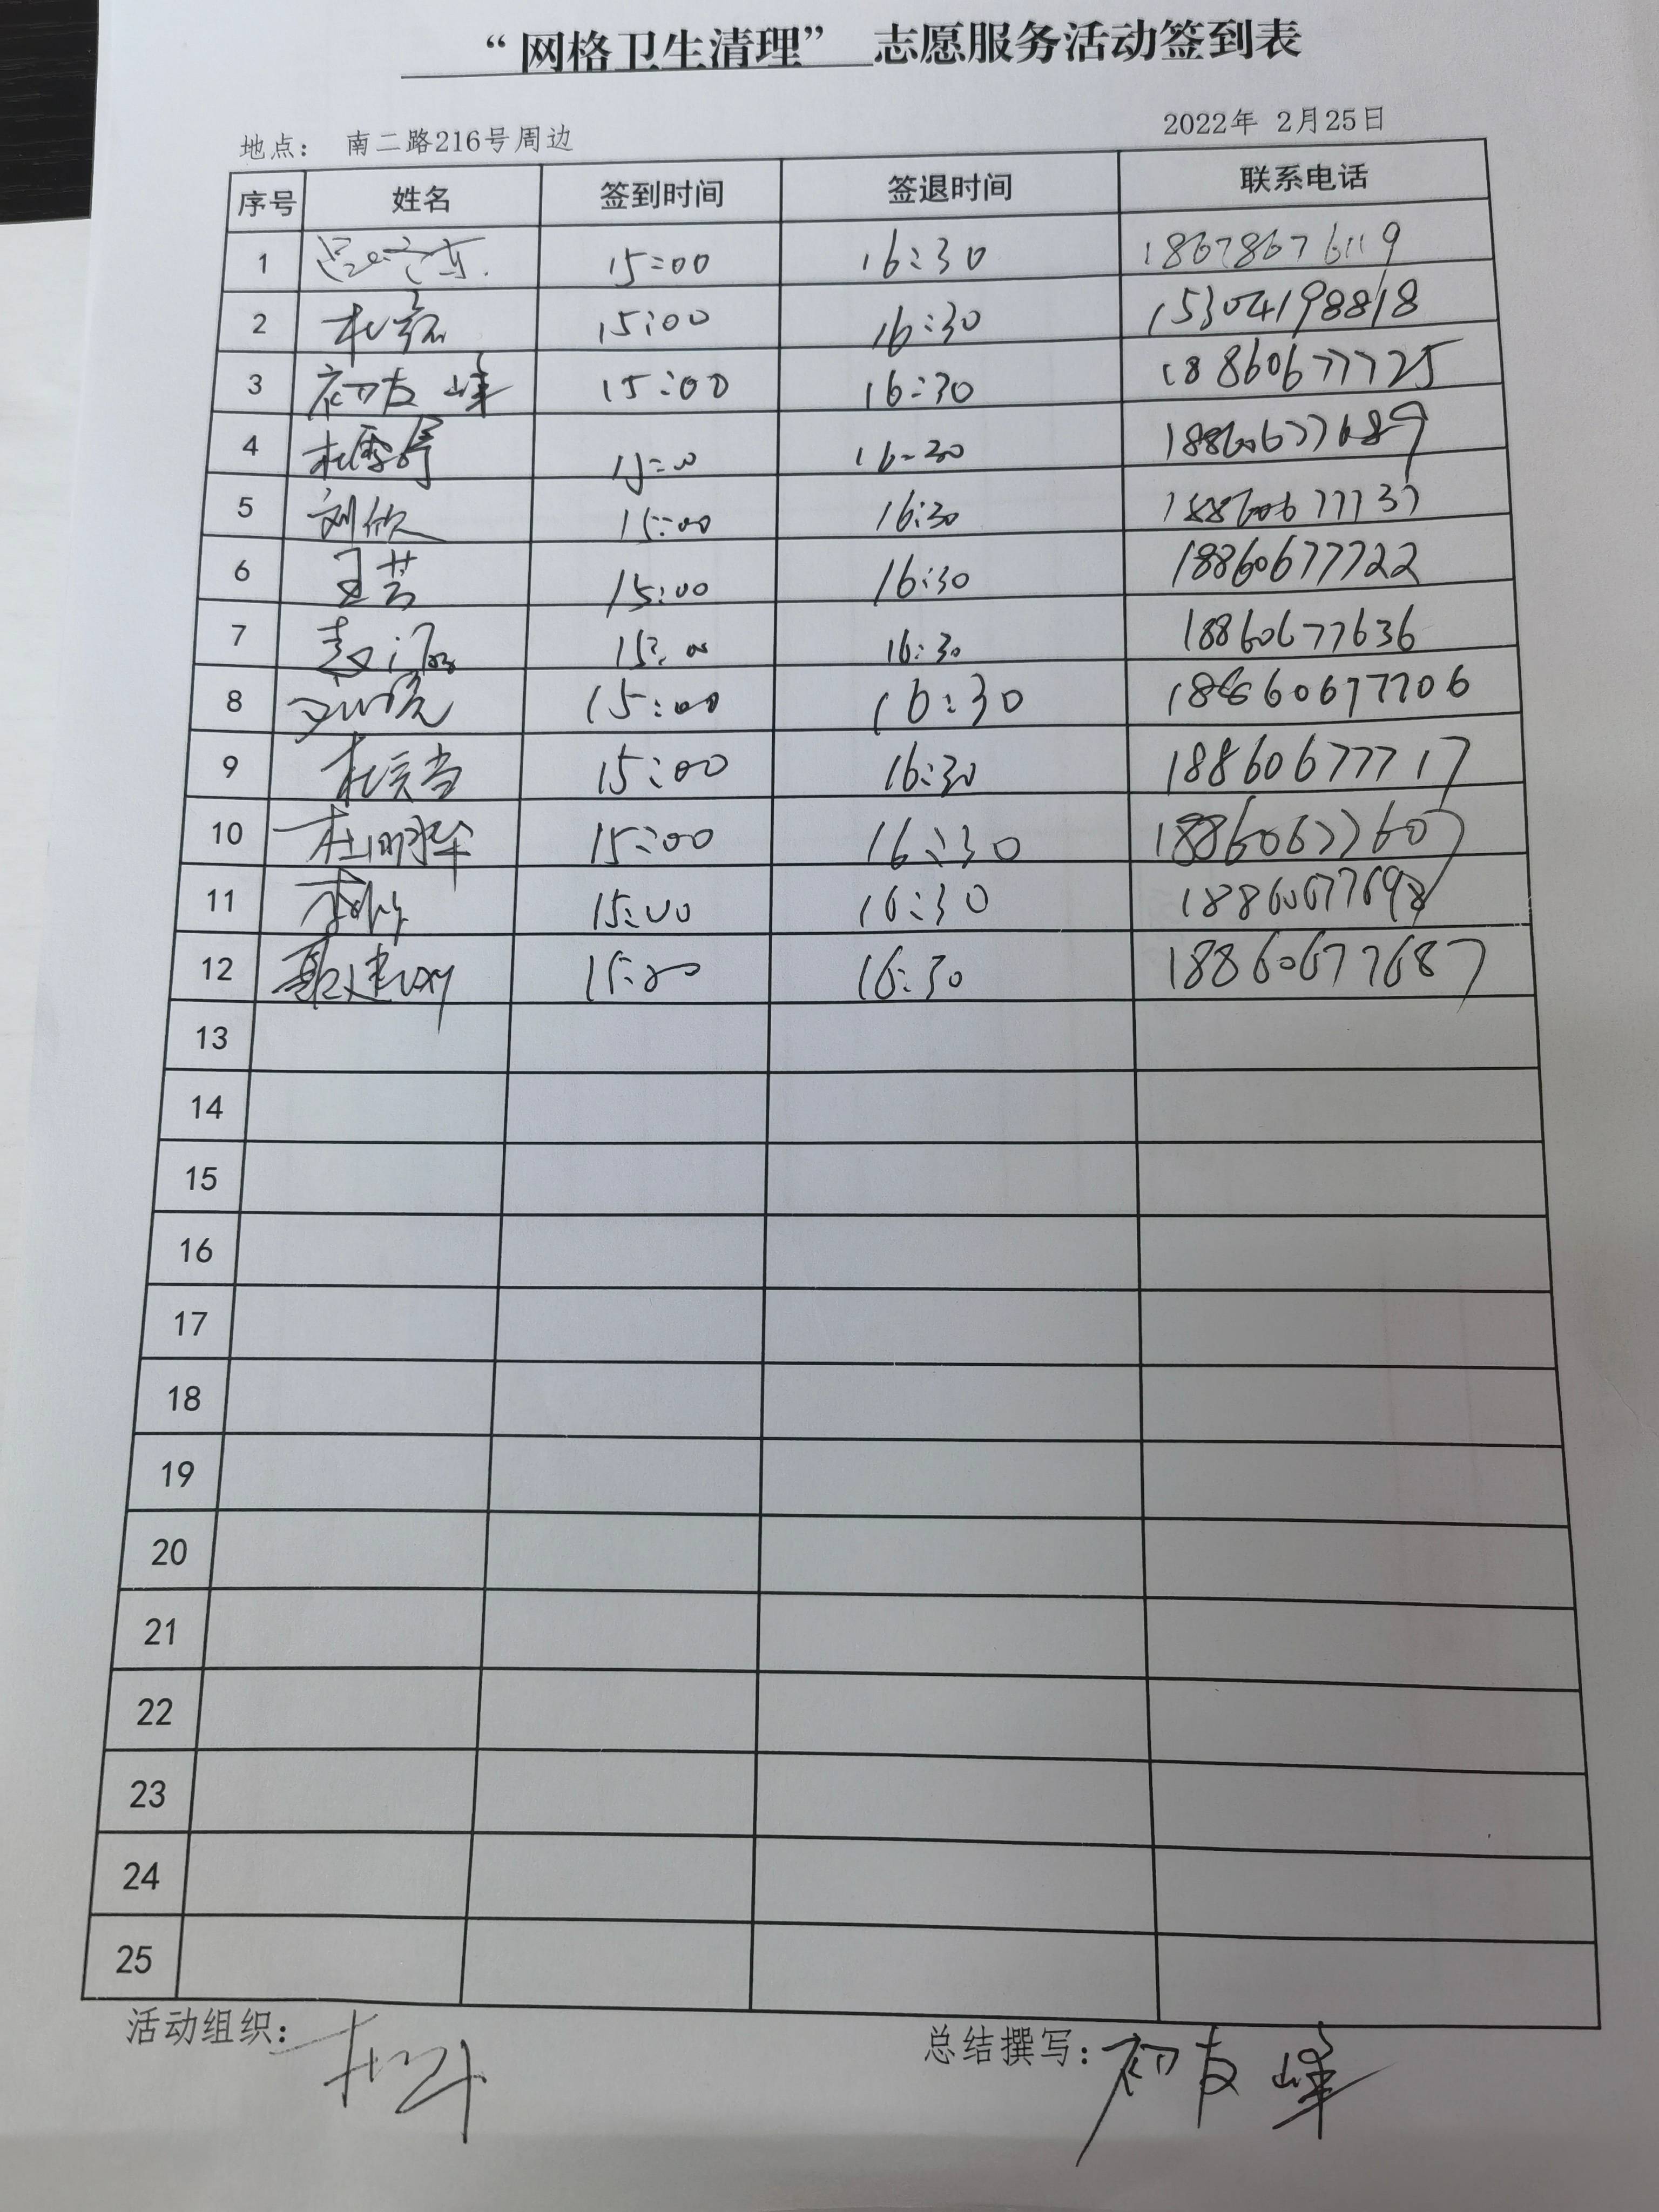 “网格卫生清理” 志愿服务活动签到表
地点： 南二路216号周边 2022年 2月25日
序号 姓名 签到时间 签退时间 联系电话
1 15:00 16:30 18678676119
2 15:00 16:30 15304198818
3 初友峰 15:00 16:30 18860677725
4 16:30 18860677689
5 刘欣 15:00 16:30 18860677737
6 王芸 15:00 16:30 18860677722
7 15:00 16:30 18860677636
8 15:00 16:30 18860677706
9 15:00 16:30 18860677717
10 杜明华 15:00 16:30 18860677607
11 15:00 16:30 18860677698
12 15:00 16:30 18860677687
13
14
15
16
17
18
19
20
21
22
23
24
25
活动组织： 总结撰写：初友峰